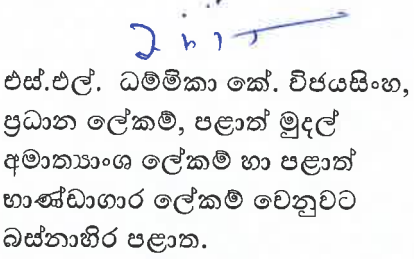 එස්.එල්. ධම්මිකා කේ. විජයසිංහ,
ප්‍රධාන ලේකම්, පළාත් මුදල්
අමාත්‍යාංශ ලේකම් හා පළාත්
භාණ්ඩාගාර ලේකම් වෙනුවට
බස්නාහිර පළාත.